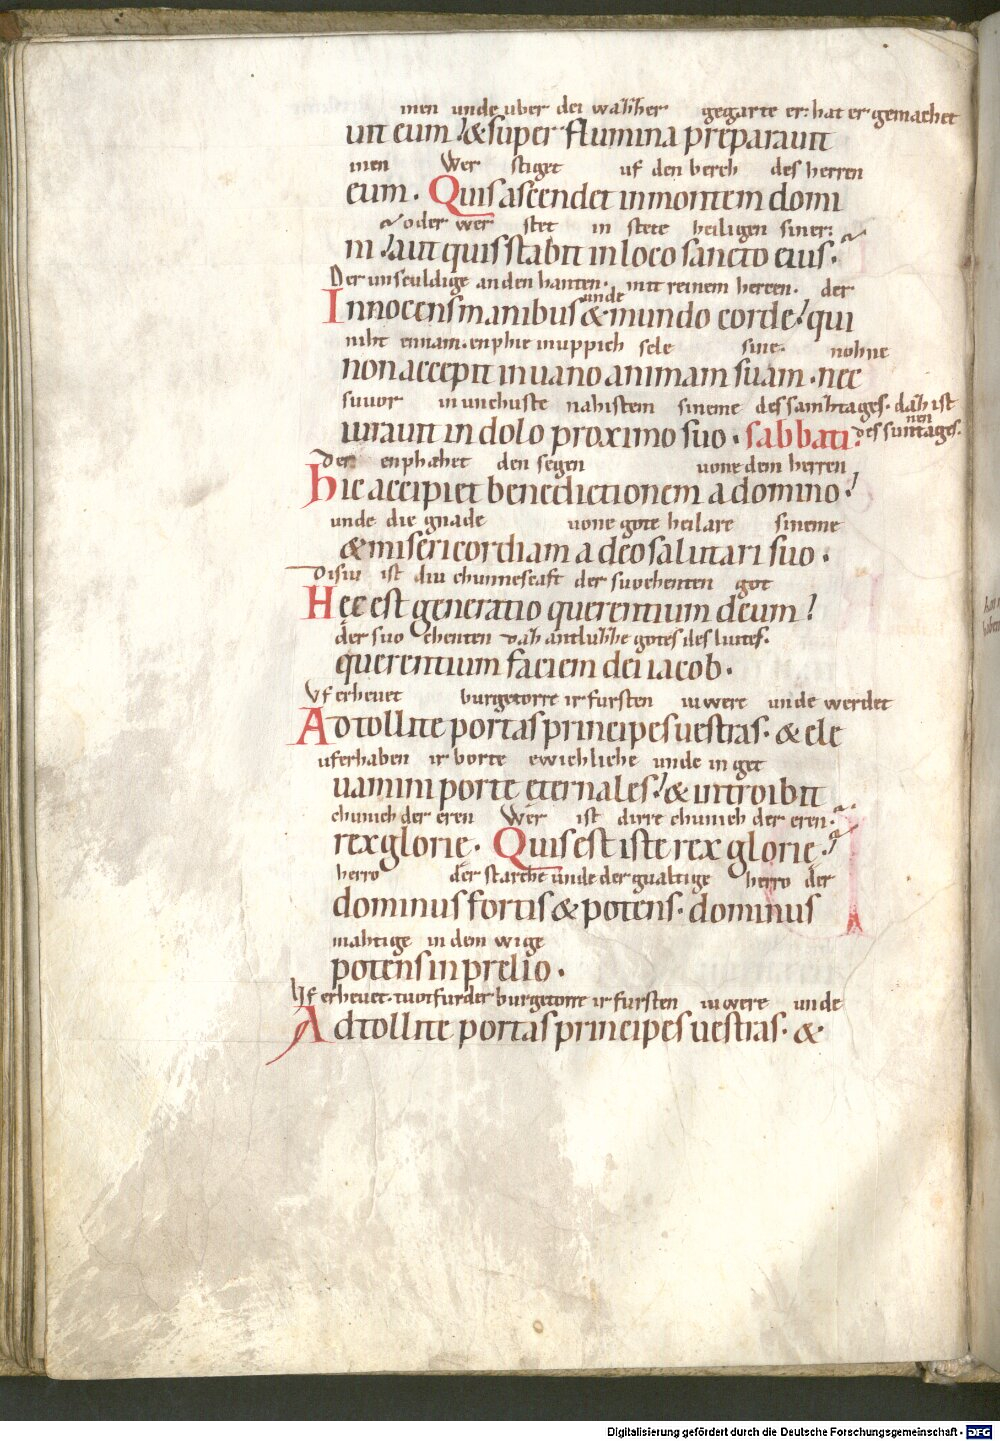 men unde uber dei wazzer gegarte er: hat er gemachet
uit eum? & super flumina preparauit
men Wer stiget uf den berch des herren
eum. Quis ascendet in montem domi
oder wer stet in stete heiligen siner:
ni? aut quis stabit in loco sancto eius.
Der unsculdige an den hanten. mit reinem hercen. der
unde
Innocens manibus & mundo corde? qui
niht ennam. enphie in uppich sele sine. nohne
non accepit in uano animam suam. nec
suuor in unchuste nahistem sineme des sambztages. daz ist
nen
iurauit in dolo proximo suo. sabbati. des suntages.
Der enphahet den segen uone dem herren
hic accipiet benedictionem a domino?
unde die gnade uone gote heilare sineme
& misericordiam a deo salutari suo.
Disiu ist diu chunnescaft der suochenten got
Hec est generatio querentium deum?
der suochenten daz antluzze gotes des liutes.
querentium faciem dei iacob.
Uf erheuet burgetorre ir fursten iuwere unde werdet
Adtollite portas principes uestras. & ele
uferhaben ir borte ewichliche unde in get
uamini porte eternales? & introibit
chunich der eren Wer ist dirre chunich der eren.
rex glorie. Quis est iste rex glorie?
herro der starche unde der gualtige herro der
dominus fortis & potens. dominus
mahtige in dem wige
potens in prelio.
Uf erheuet. tuot furder burgetorre ir fursten iuwere unde
Adtollite portas principes uestras. &
Digitalisierung gefördert durch die Deutsche Forschungsgemeinschaft - DFG